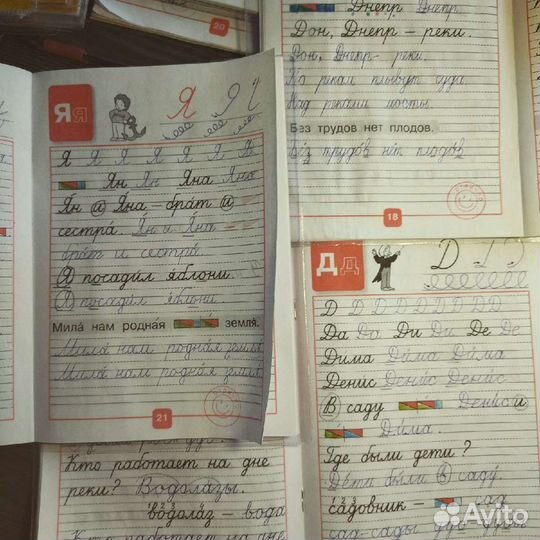 20
Я я
Я Я Ч
Я Я Я Я Я Я Я
Ян Ян Яна Яна
Ян и Яна – брат и
сестра. Ян и Яна –
брат и сестра.
Я посадил яблони.
Я посадил яблони.
Мила нам родная земля.
Мила нам родная земля
Мила нам родная земля
21
Днепр Днепр
Дон, Днепр – реки.
Дон, Днепр – реки.
По рекам плывут суда.
Над реками мосты.
Без трудов нет плодов.
Без трудов нет плодов
18
Д д
Д
Д Д Д Д Д Д Д
Да Да Ди Ди Де Де
Дима Дима Дима
Денис Денис Денис
В саду Денис и
Дима.
Где были дети?
Дети были в саду.
садовник – сад
сад-сады
Кто работает на дне
реки? Водолазы.
водолаз – вода
Кто работает на дне
Avito